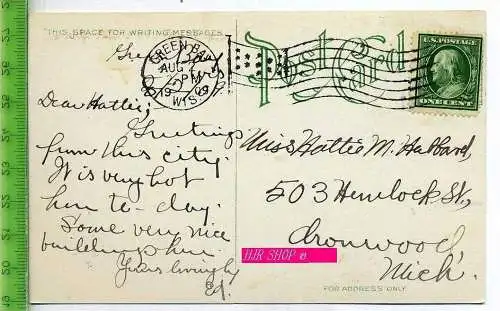 THIS SPACE FOR WRITING MESSAGES
Post Card
GREEN BAY
AUG
5 PM
1909
WIS.
U.S. POSTAGE
ONE CENT
Dear Hattie;
Greetings
from this city.
It is very hot
here to-day.
Some very nice
buildings here
Yours lovingly
Ed.
Miss Hattie M. Hubbard,
503 Hemlock St.,
Ironwood
Mich.
HJR SHOP ©
FOR ADDRESS ONLY